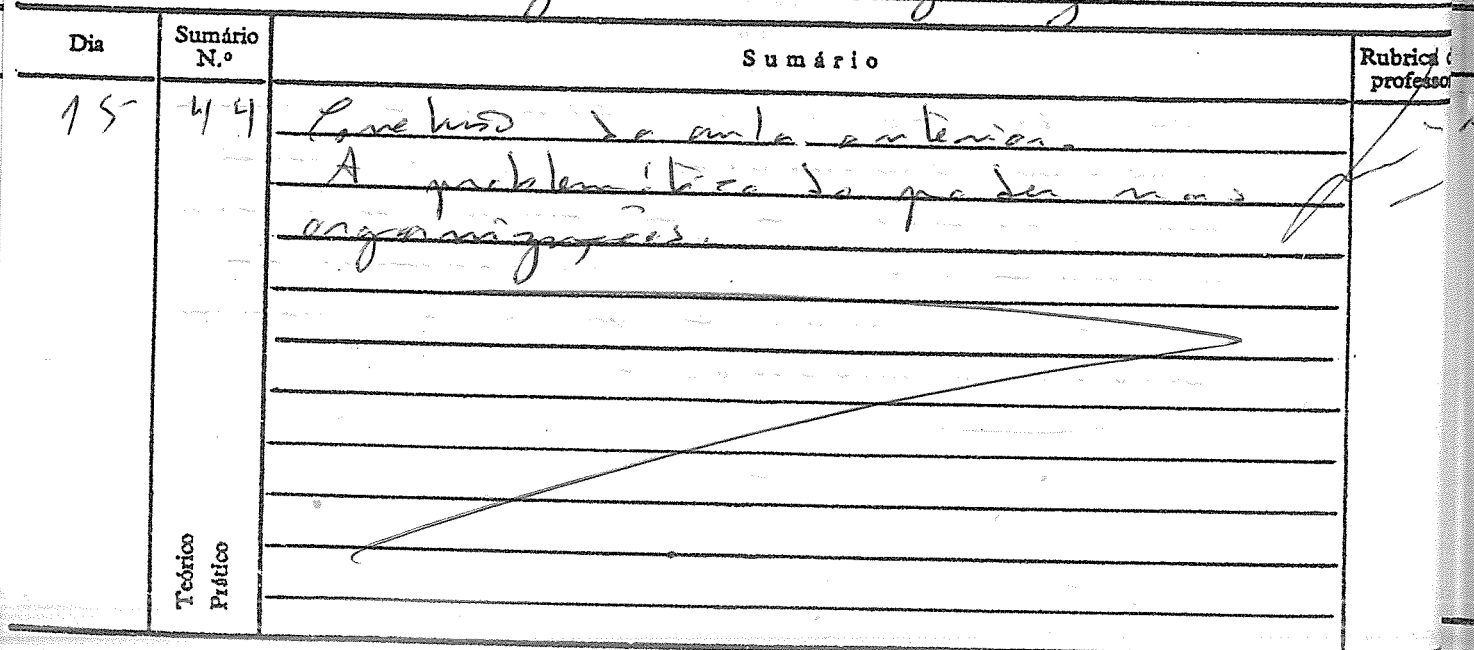 Dia
Sumário N.º
Sumário
Rubrica
professo
15
44
Conclusão da aula anterior.
A problemática do poder nas
organizações.
Teórico
Prático